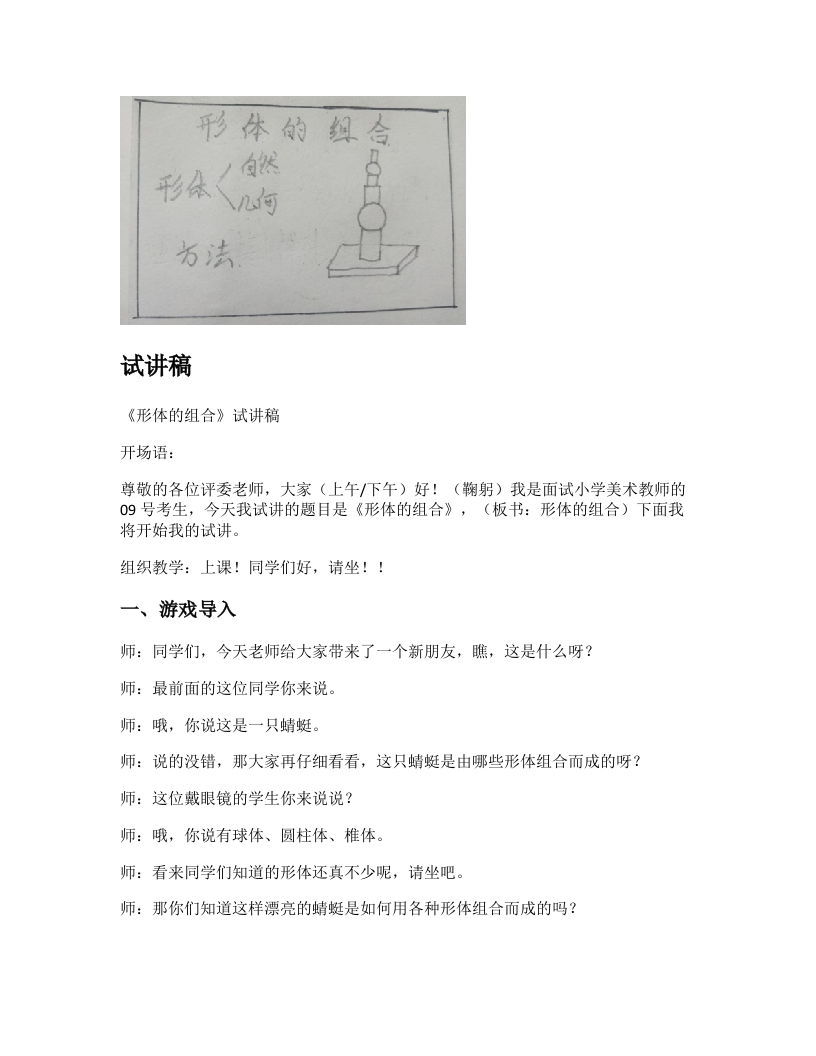 形体的组合
形体
自然
几何
方法
试讲稿
《形体的组合》试讲稿
开场语：
尊敬的各位评委老师，大家（上午/下午）好！（鞠躬）我是面试小学美术教师的
09 号考生，今天我试讲的题目是《形体的组合》，（板书：形体的组合）下面我
将开始我的试讲。
组织教学：上课！同学们好，请坐！！
一、游戏导入
师：同学们，今天老师给大家带来了一个新朋友，瞧，这是什么呀？
师：最前面的这位同学你来说。
师：哦，你说这是一只蜻蜓。
师：说的没错，那大家再仔细看看，这只蜻蜓是由哪些形体组合而成的呀？
师：这位戴眼镜的学生你来说说？
师：哦，你说有球体、圆柱体、椎体。
师：看来同学们知道的形体还真不少呢，请坐吧。
师：那你们知道这样漂亮的蜻蜓是如何用各种形体组合而成的吗？